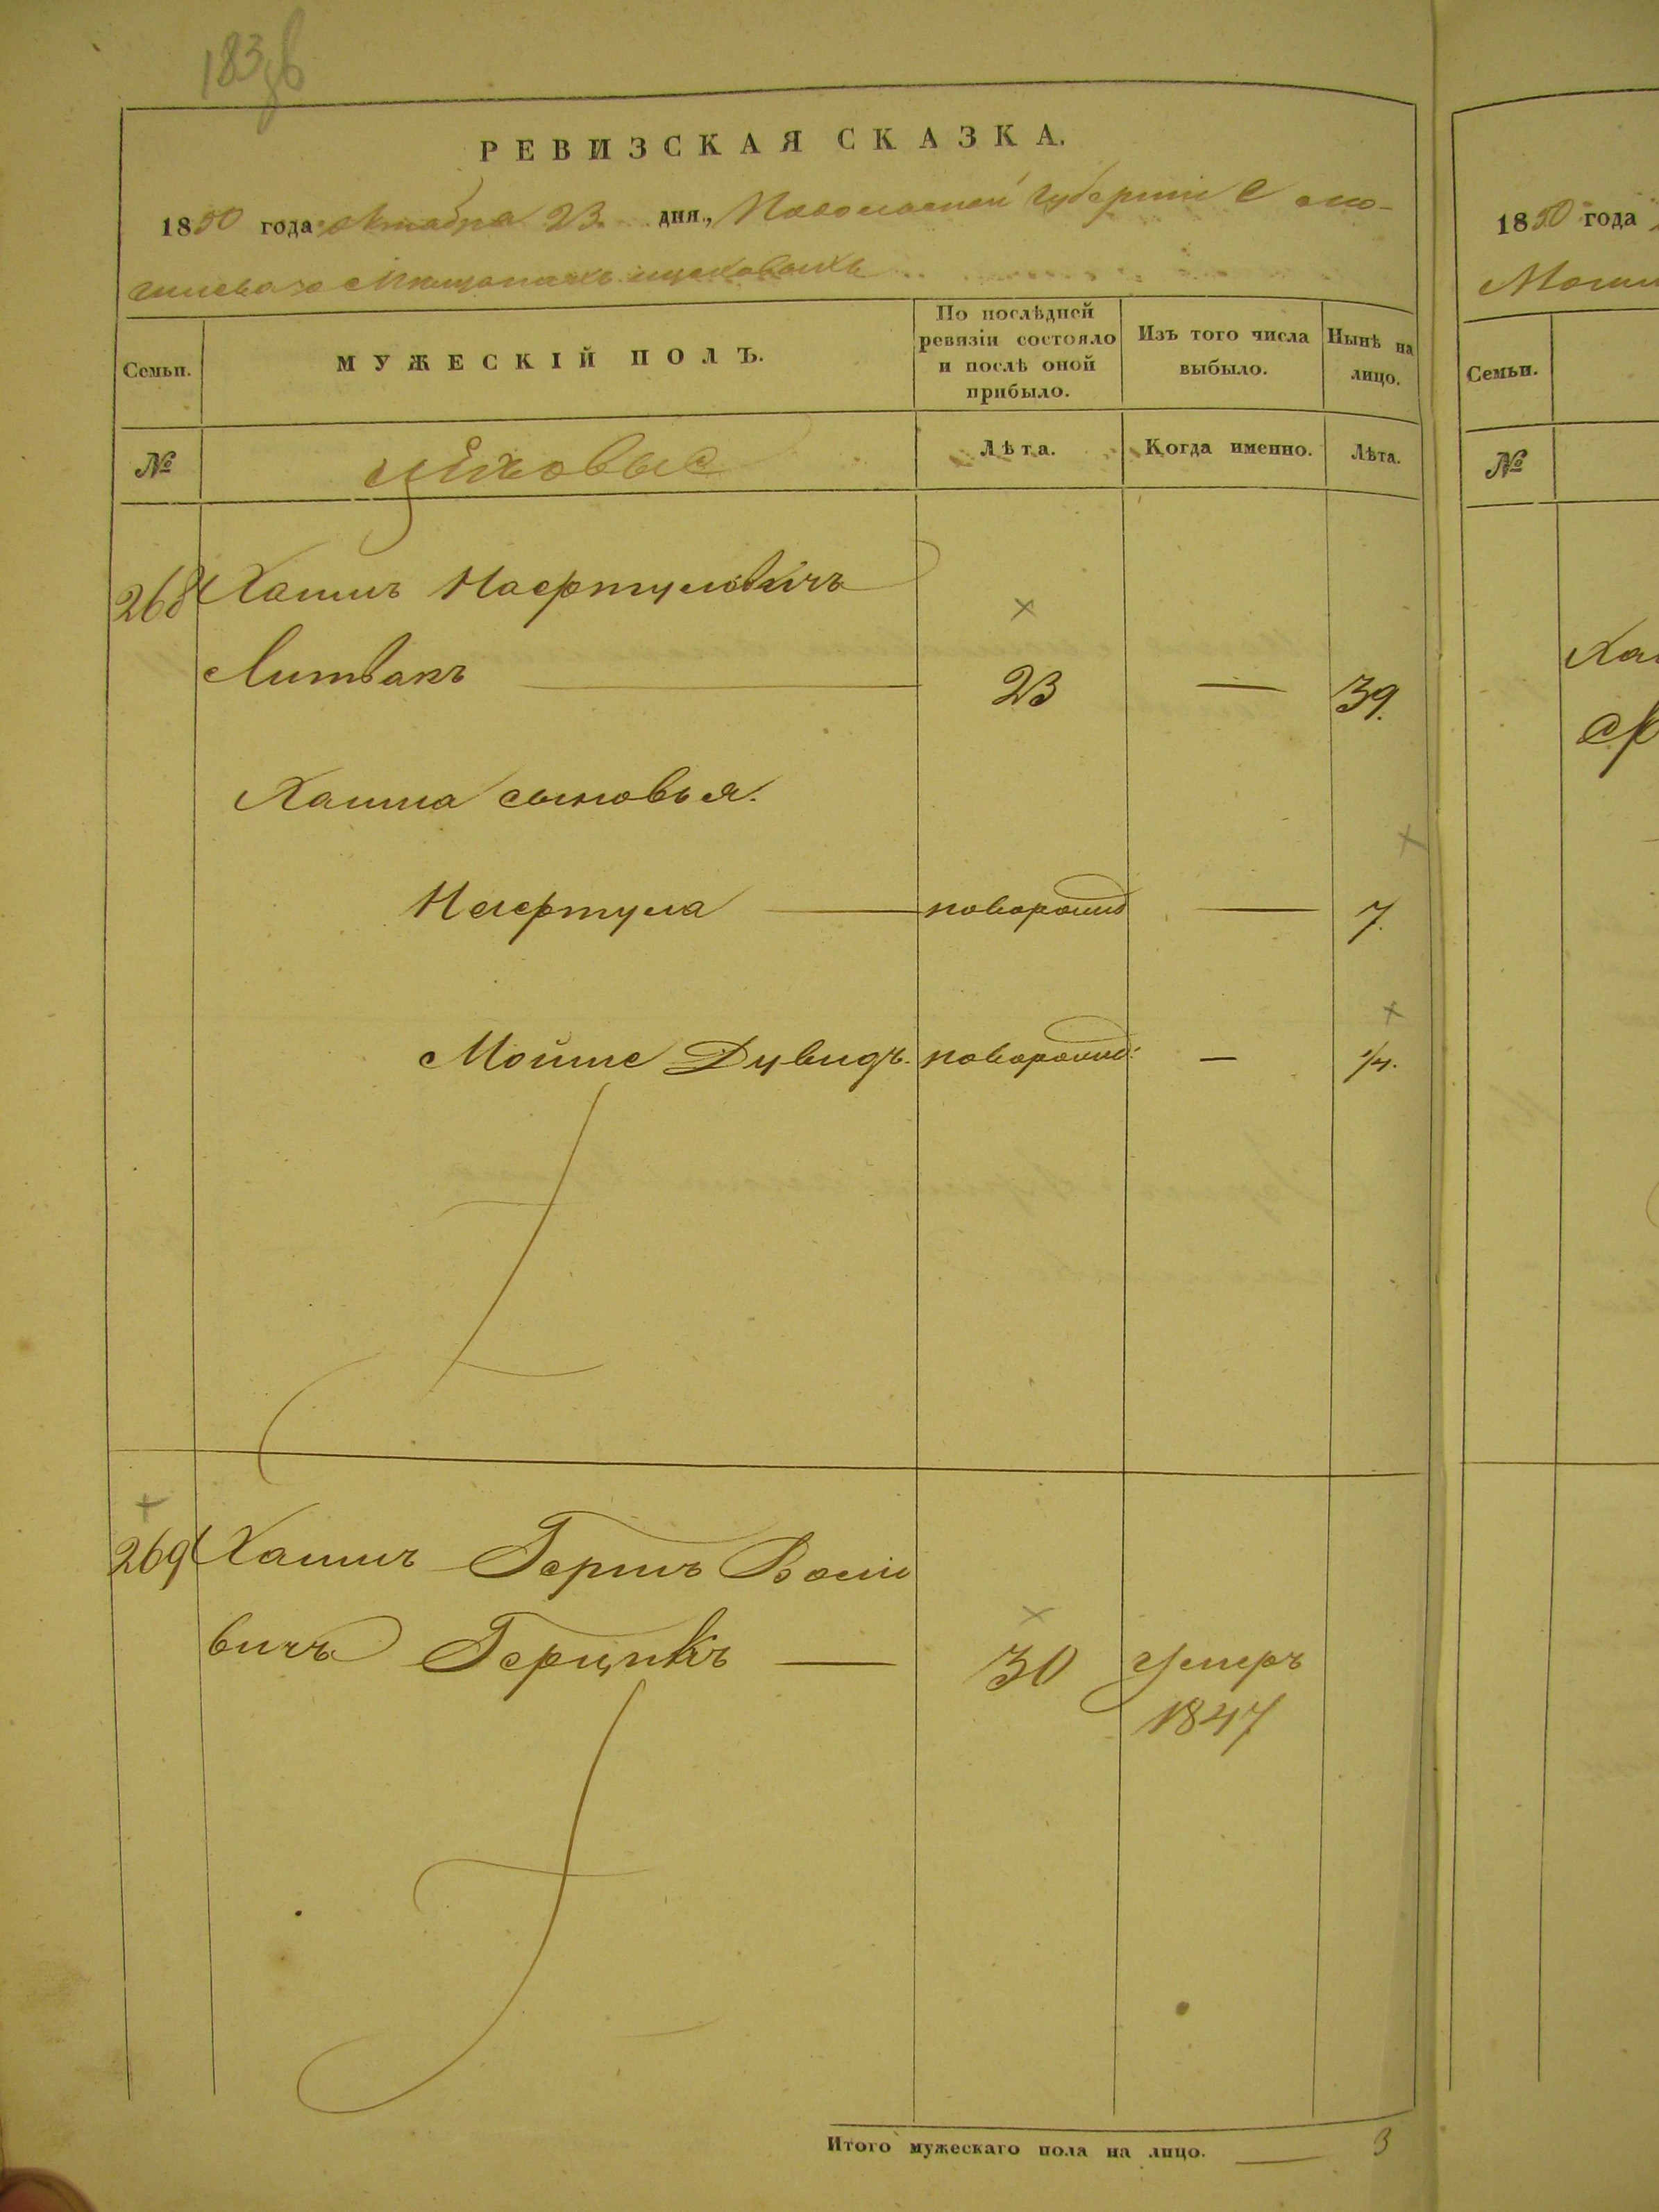 РЕВИЗСКАЯ СКАЗКА.
1850 года Октября 23 дня, Подольской Губерніи О Мо-
гилева
Семьи.
МУЖЕСКІЙ ПОЛЪ.
По послѣдней
ревизіи состояло
и послѣ оной
прибыло.
Изъ того числа
выбыло.
Нынѣ на
лицо.
№
Цеховые
Лѣта.
Когда именно.
Лѣта.
268 Хаимъ Нафтуловичъ
Литвакъ 23 — 39.
Хаима сыновья.
Нафтула новорожд — 7.
Мойше Дувидъ. новорожд: — 1/4.
269 Хаимъ Гершъ Волі
вичъ Герцикъ 30 Умеръ
1847
Итого мужескаго пола на лицо. 3
1850 года
Семьи.
№
Хаи